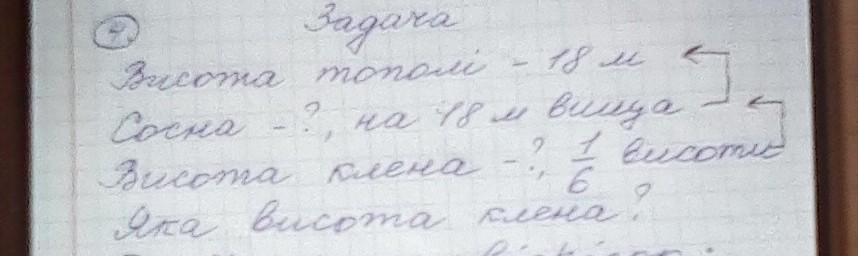 4. Задача
Висота тополі - 18 м
Сосна - ?, на 18 м вища
Висота клена - ?, 1/6 висоти
Яка висота клена?